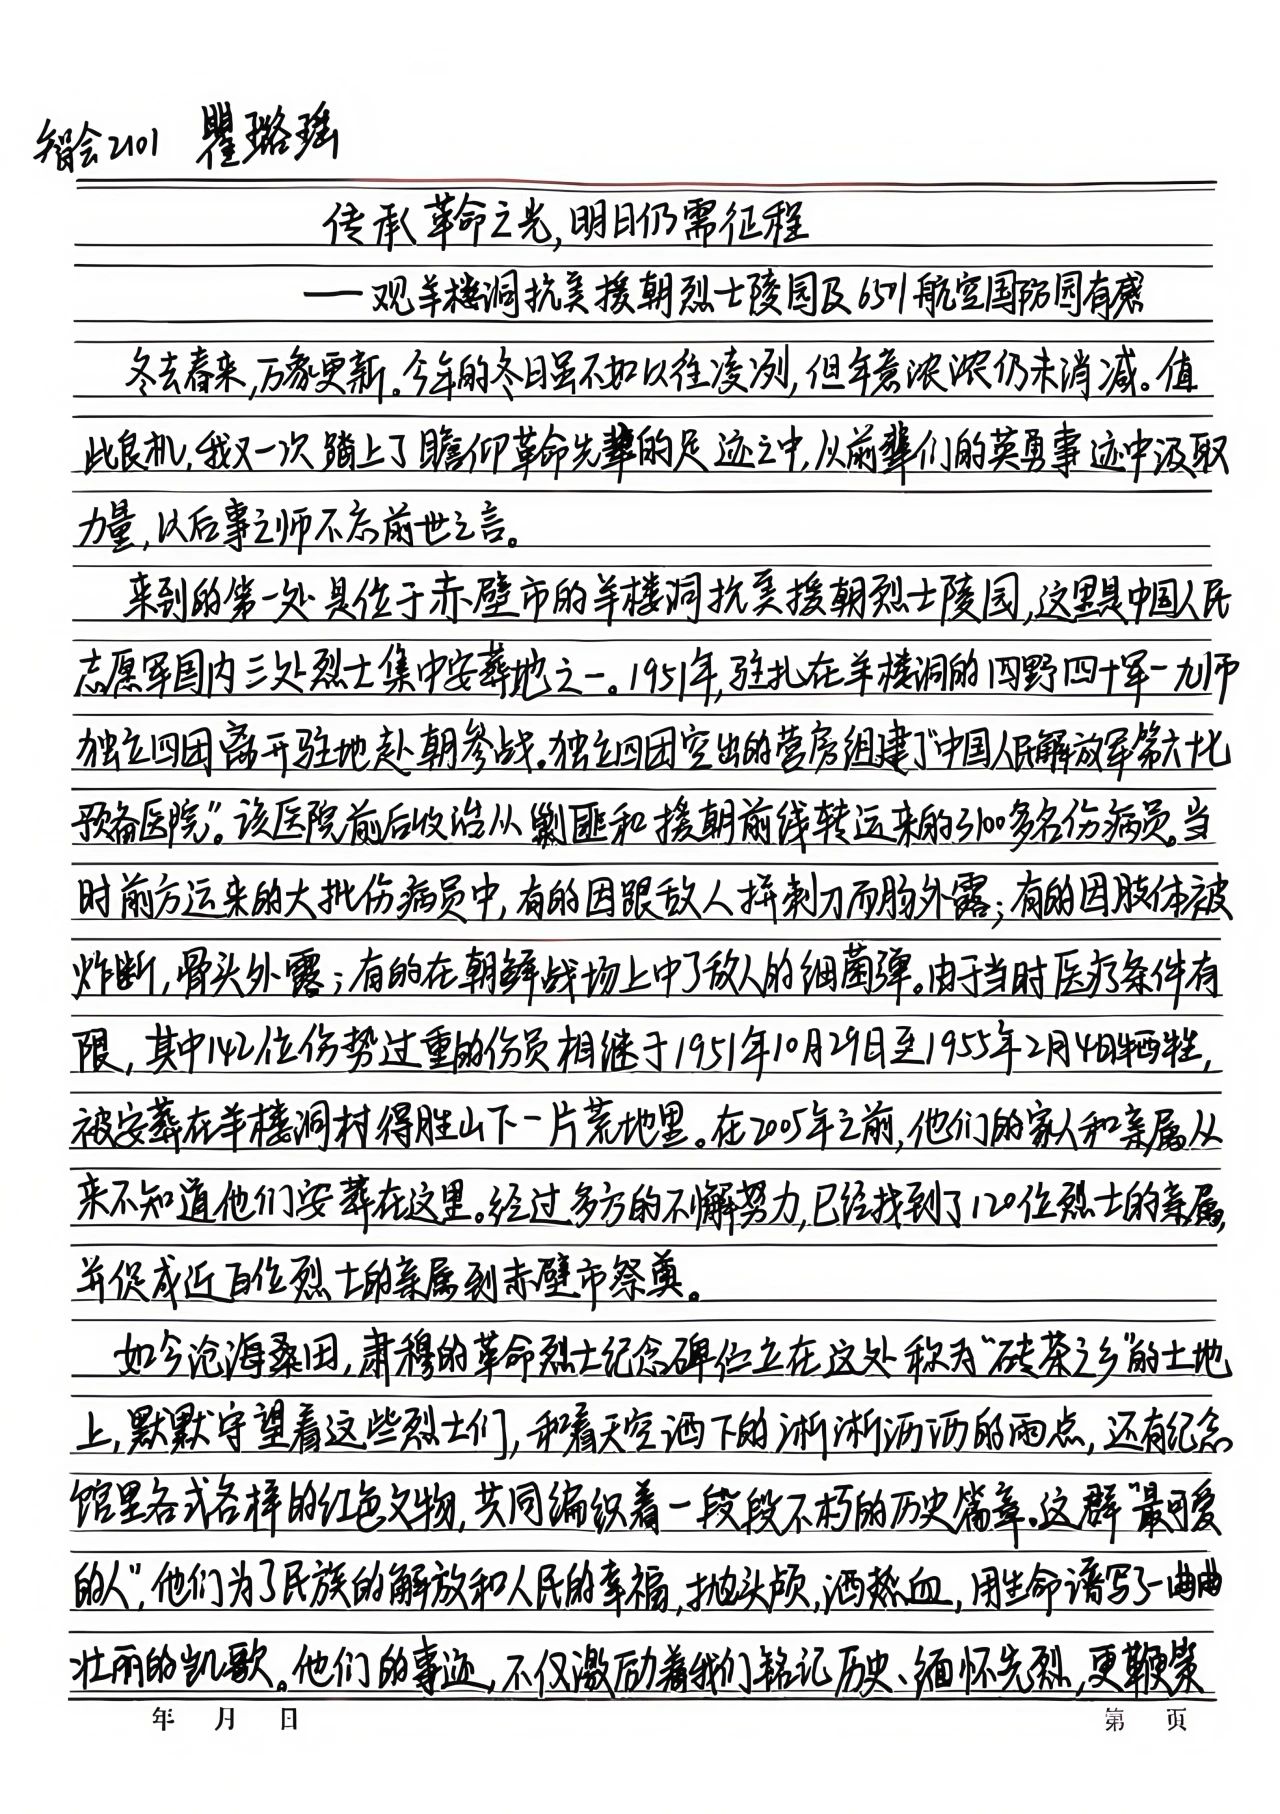 智会2101 瞿璐瑶
传承革命之光,明日仍需征程
——观羊楼洞抗美援朝烈士陵园及6501航空国防园有感
冬去春来,万象更新。今年的冬日虽不如以往凌冽,但年意浓浓仍未消减。值
此良机,我又一次踏上了瞻仰革命先辈的足迹之中,从前辈们的英勇事迹中汲取
力量,以后事之师不忘前世之言。
来到的第一处是位于赤壁市的羊楼洞抗美援朝烈士陵园,这里是中国人民
志愿军国内三处烈士集中安葬地之一。1951年,驻扎在羊楼洞的四野四十军一九师
独立四团离开驻地赴朝参战。独立四团空出的营房组建了“中国人民解放军第六十七
预备医院”。该医院前后收治从剿匪和援朝前线转运来的3100多名伤病员。当
时前方运来的大批伤病员中,有的因跟敌人拼刺刀而肠外露;有的因肢体被
炸断,骨头外露;有的在朝鲜战场上中了敌人的细菌弹。由于当时医疗条件有
限,其中142位伤势过重的伤员相继于1951年10月29日至1955年2月4日牺牲,
被安葬在羊楼洞村得胜山下一片荒地里。在2005年之前,他们的家人和亲属从
来不知道他们安葬在这里。经过多方的不懈努力,已经找到了120位烈士的亲属,
并促成近百位烈士的亲属到赤壁市祭奠。
如今沧海桑田,肃穆的革命烈士纪念碑伫立在这处称为“砖茶之乡”的土地
上,默默守望着这些烈士们,和着天空洒下的淅淅沥沥的雨点,还有纪念
馆里各式各样的红色文物,共同编织着一段段不朽的历史篇章。这群“最可爱
的人”,他们为了民族的解放和人民的幸福,抛头颅,洒热血,用生命谱写了一曲曲
壮丽的凯歌。他们的事迹,不仅激励着我们铭记历史、缅怀先烈,更鞭策
年 月 日 第 页